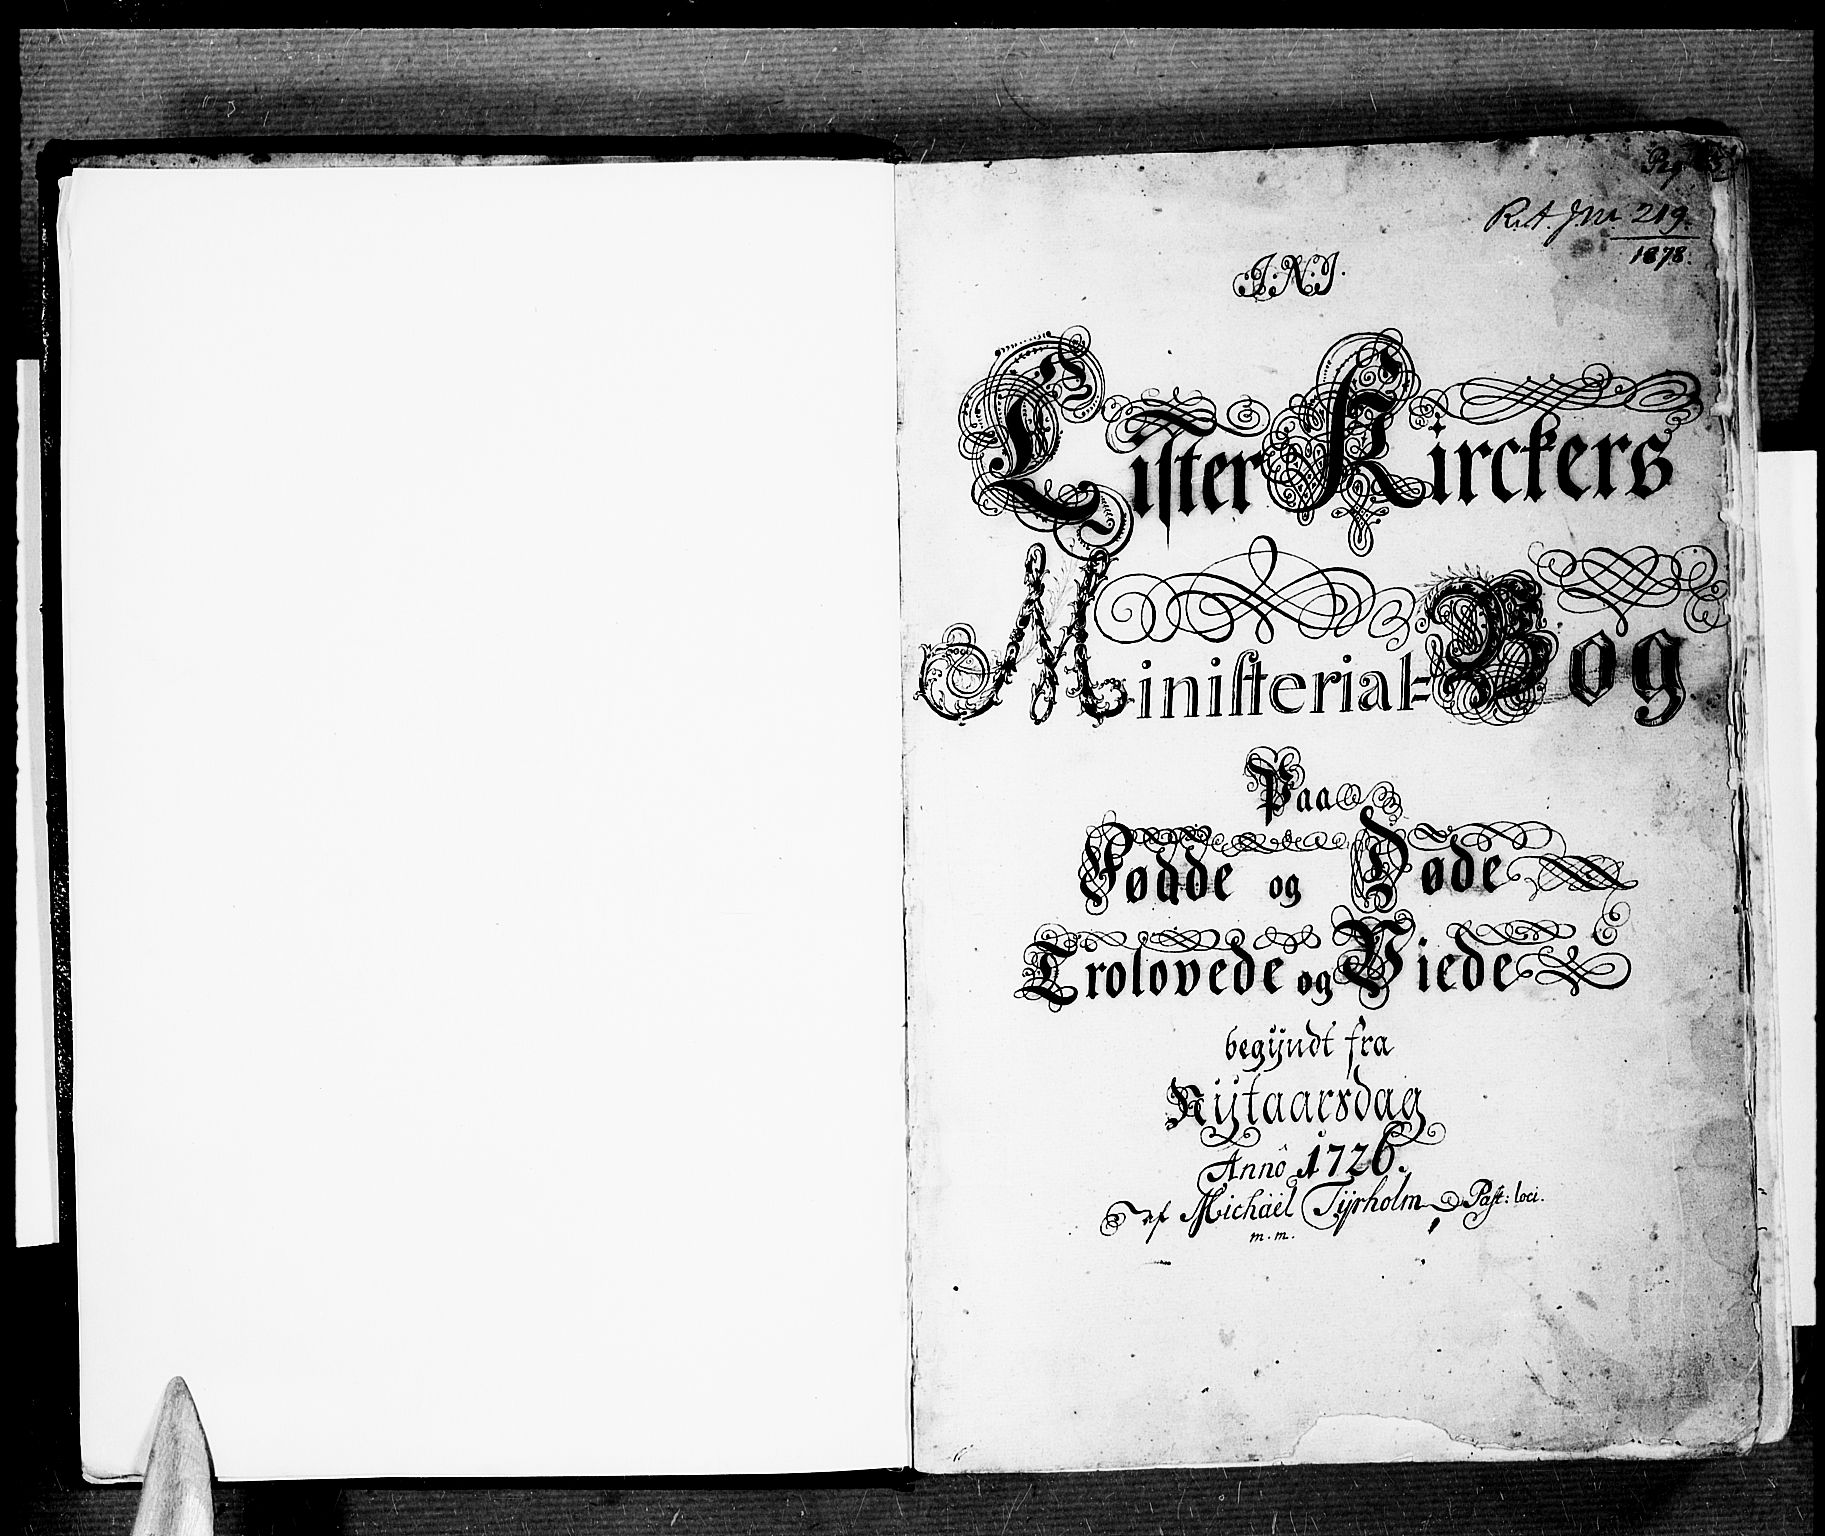 R.A. Jnr. 219.
1878.
J.N.J.
Lister Kirckers
Ministerial=Bog
Paa
Fødde og Døde
Trolovede og Viede
begÿndt fra
Nÿtaarsdag
Anno 1726.
af Michaël Tÿrholm Past: loci.
m. m.